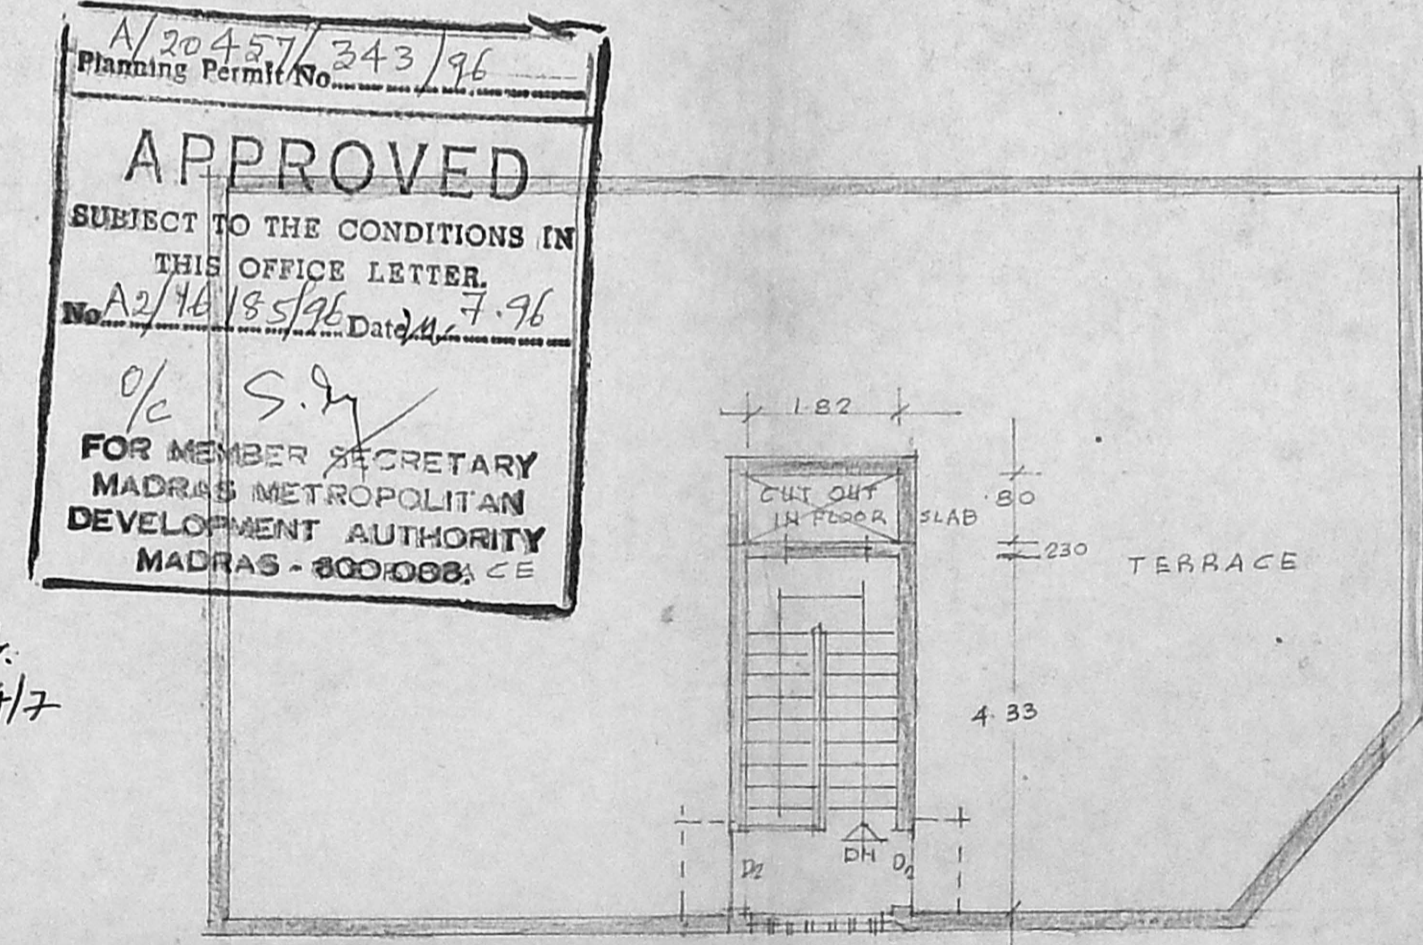 A/20457/343/96
Planning Permit No.
APPROVED
SUBJECT TO THE CONDITIONS IN
THIS OFFICE LETTER.
No A2/16185/96 Date 7.96
O/C
FOR MEMBER SECRETARY
MADRAS METROPOLITAN
DEVELOPMENT AUTHORITY
MADRAS - 600 008.
1.82
CUT OUT
IN FLOOR SLAB
.80
230
TERRACE
4.33
D2
DN
D2